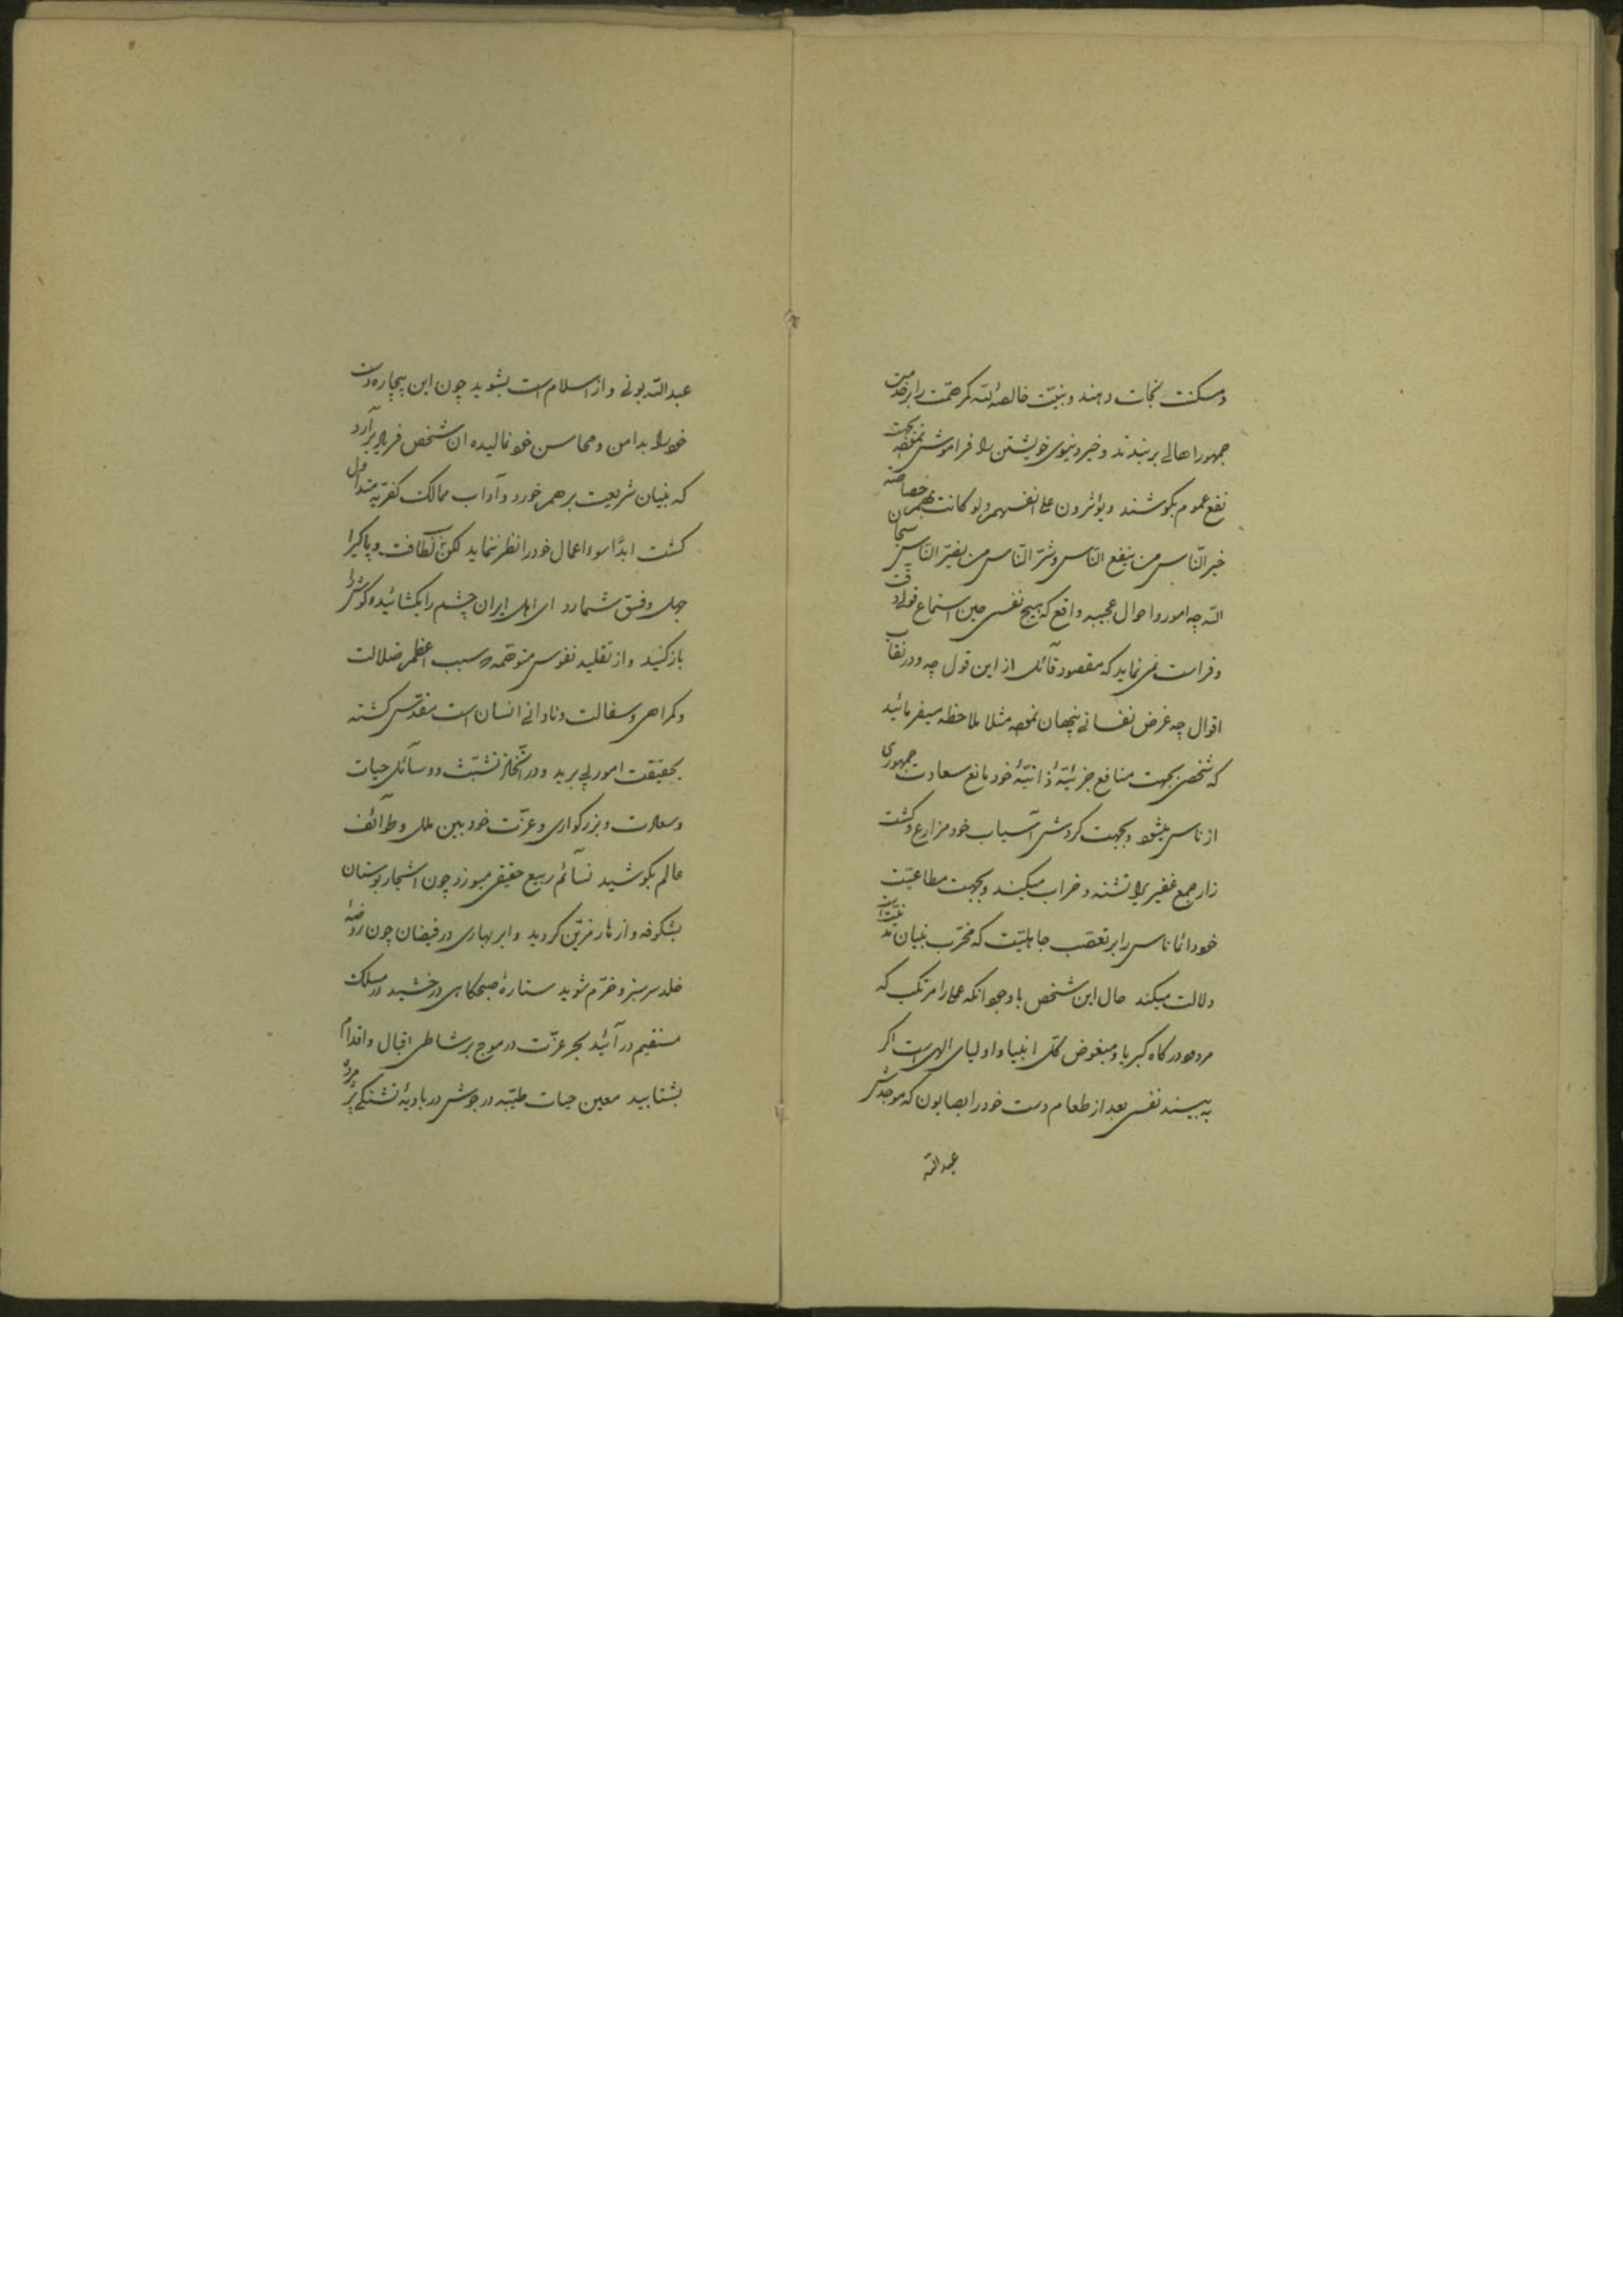 و مسکنت نجات دهند و بنیت خالصهٔ لله کمر همت را بر خدمت
جمهور اهالی بربندند و خیر دنیوی خویشتن را فراموش نموده بجهت
نفع عموم بکوشند و یؤثرون علی انفسهم ولو کانت بهم خصاصه
خیر الناس من ینفع الناس و شر الناس من یضر الناس سبحان
الله چه امور و احوال عجیبه واقع که هیچ نفسی حین استماع قولی دقت
و فراست نمی نماید که مقصود قائل از این قول چه و در نقاب
اقوال چه غرض نفسانی پنهان نموده مثلا ملاحظه میفرمائید
که شخصی بجهت منافع جزئیهٔ ذاتیهٔ خود مانع سعادت جمهوری
از ناس میشود و بجهت گردش آسیاب خود مزارع و کشت
زار جمع غفیر را تشنه و خراب میکند و بجهت مطاعیت
خود دائما ناس را بر تعصب جاهلیت که مخرب بنیان مدنیت است
دلالت میکند حال این شخص با وجود آنکه عملی را مرتکب که
مردود درگاه کبریا و مبغوض کل انبیا و اولیای الهی است اگر
به بیند نفسی بعد از طعام دست خود را بصابون که موجدش
عبدالله
عبدالله بونی و از اسلام است بشوید چون این بیچاره دست
خود را بدامن و محاسن خود نمالیده آن شخص فریاد برآرد
که بنیان شریعت بر هم خورد و آداب ممالک کفریه متداول
گشت ابدا سوء اعمال خود را نظر ننماید لکن لطافت و پاکی را
جهل و فسق شمارد ای اهل ایران چشم را بگشائید و گوش را
باز کنید و از تقلید نفوس متوهمه که سبب اعظم ضلالت
و گمراهی و سفالت و نادانی انسان است مقدس گشته
بحقیقت امور پی برید و در اتخاذ تشبث و وسائل حیات
و سعادت و بزرگواری و عزت خود بین ملل و طوائف
عالم بکوشید نسائم ربیع حقیقی میوزد چون اشجار بوستان
بشکوفه و ازهار مزین گردید و ابر بهاری در فیضان چون روضهٔ
خلد سرسبز و خرم شوید ستارهٔ صبحگاهی درخشید در مسلک
مستقیم درآئید بحر عزت در موج بر شاطی اقبال و اقدام
بشتابید معین حیات طیبه در جوش در بادیهٔ تشنگی پژمرده